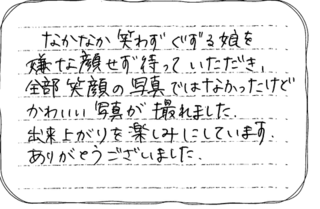 なかなか笑わずぐずる娘を
嫌な顔せず待っていただき、
全部笑顔の写真ではなかったけど
かわいい写真が撮れました.
出来上がりを楽しみにしています.
ありがとうございました.